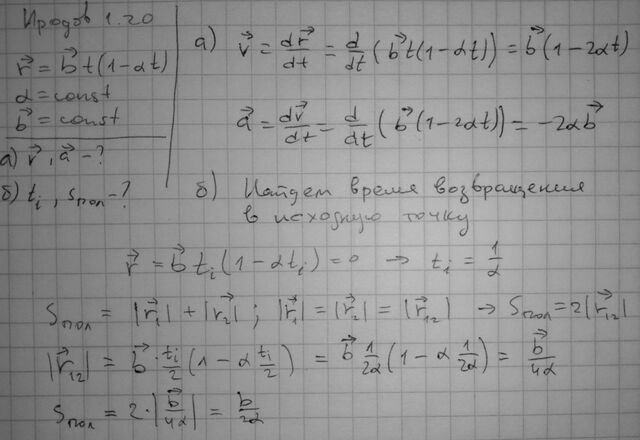 Иродов 1.20
r⃗ = b⃗ t(1-αt)
α = const
b⃗ = const
а) v⃗, a⃗ - ?
б) tᵢ, Sпол - ?
а) v⃗ = dr⃗/dt = d/dt (b⃗t(1-αt)) = b⃗(1-2αt)
a⃗ = dv⃗/dt = d/dt (b⃗(1-2αt)) = -2αb⃗
б) Найдем время возвращения
в исходную точку
r⃗ = b⃗ tᵢ(1-αtᵢ) = 0 → tᵢ = 1/α
Sпол = |r⃗₁| + |r⃗₂| ; |r⃗₁| = |r⃗₂| = |r⃗₁₂| → Sпол = 2|r⃗₁₂|
|r⃗₁₂| = b⃗ · tᵢ/2 (1 - α tᵢ/2) = b⃗ 1/2α (1 - α 1/2α) = b⃗/4α
Sпол = 2·|b⃗/4α| = b/2α